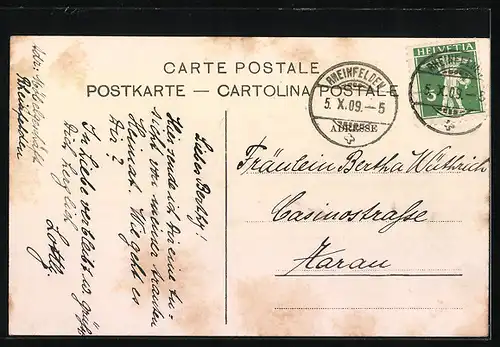 CARTE POSTALE
POSTKARTE — CARTOLINA POSTALE
HELVETIA
5
RHEINFELDEN
5. X. 09. — 5
RHEINFELDEN
5. X. 09. —
ADRESSE
Fräulein Bertha Wüthrich
Casinostrasse
Aarau
Liebe Berthy!
Hier sende ich Dir eine An-
sicht von meiner trauten
Heimat. Wie geht es
Dir?
In Liebe verbleibt es grüsst
Dich herzlich
Rheinfelden